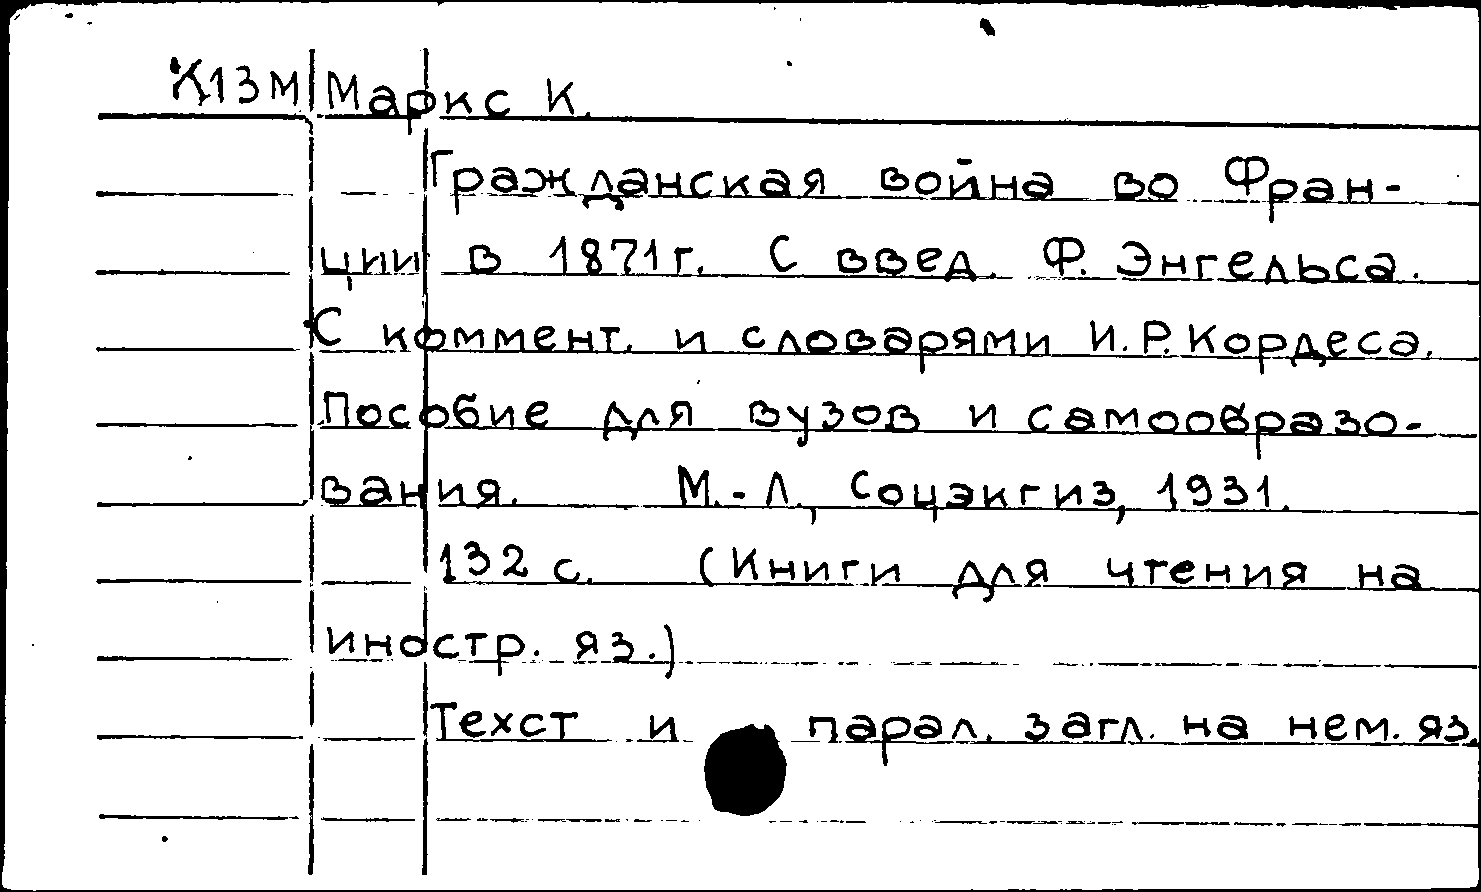 К13М Маркс К.
Гражданская война во Фран-
ции в 1871г. С введ. Ф. Энгельса.
С коммент. и словарями И.Р. Кордеса.
Пособие для вузов и самообразо-
вания. М.-Л., Соцэкгиз, 1931.
132 с. (Книги для чтения на
иностр. яз.)
Техст и парал. загл. на нем. яз.